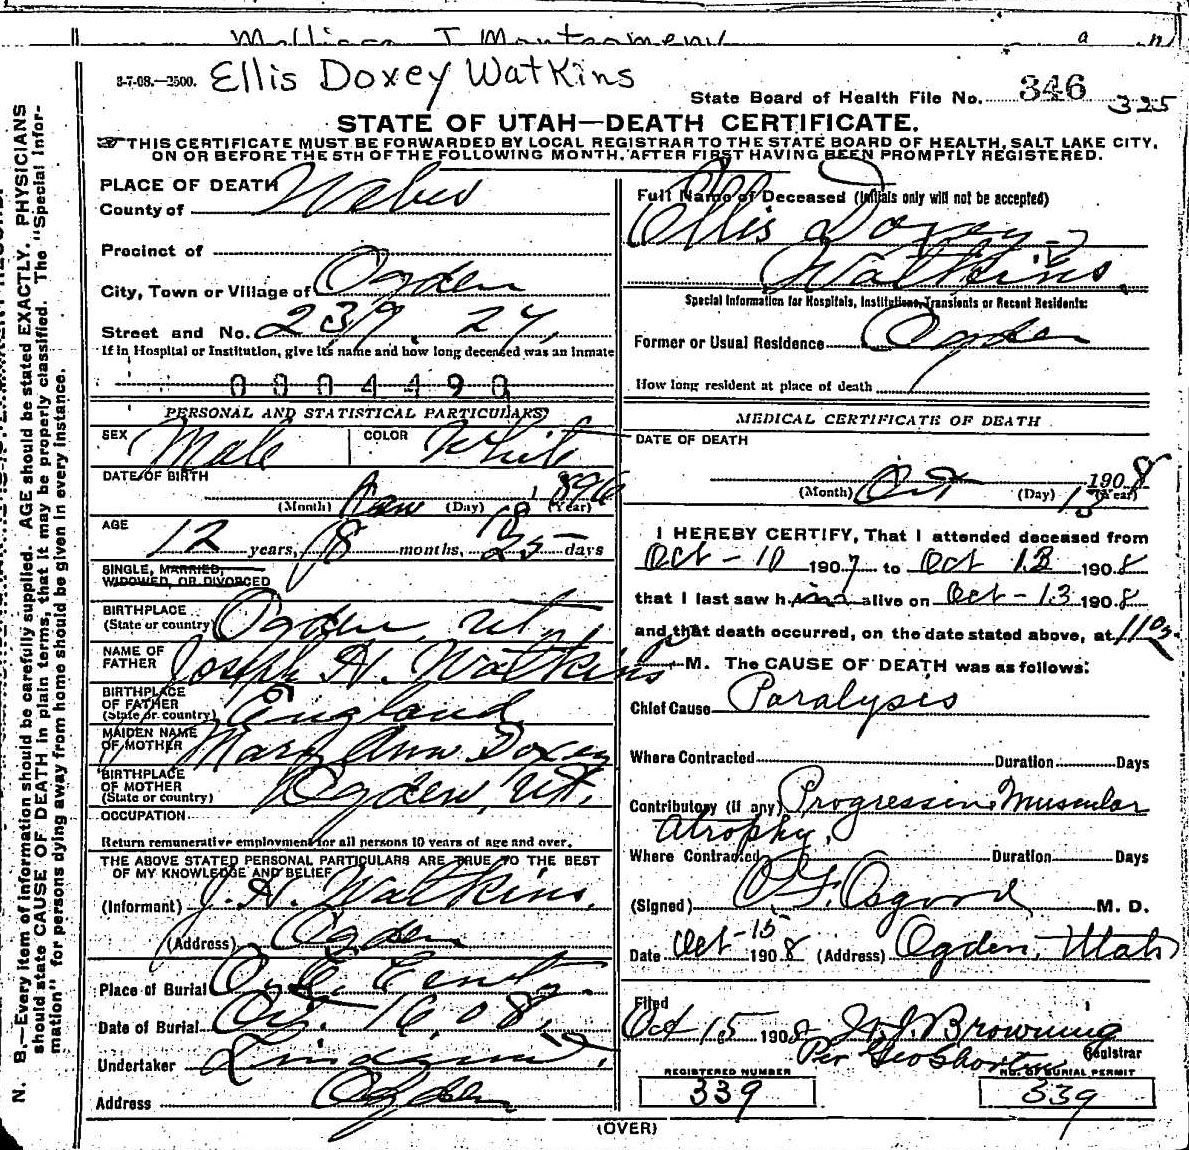 Ellis Doxey Watkins
3-7-08.—2500.
State Board of Health File No. 346 325
STATE OF UTAH—DEATH CERTIFICATE.
THIS CERTIFICATE MUST BE FORWARDED BY LOCAL REGISTRAR TO THE STATE BOARD OF HEALTH, SALT LAKE CITY,
ON OR BEFORE THE 5TH OF THE FOLLOWING MONTH, AFTER FIRST HAVING BEEN PROMPTLY REGISTERED.
N. B.—Every item of information should be carefully supplied. AGE should be stated EXACTLY. PHYSICIANS
should state CAUSE OF DEATH in plain terms, that it may be properly classified. The "Special Infor-
mation" for persons dying away from home should be given in every instance.
PLACE OF DEATH
County of Weber
Precinct of
City, Town or Village of Ogden
Street and No. 2319. 27,
If in Hospital or Institution, give its name and how long deceased was an inmate
0004490
PERSONAL AND STATISTICAL PARTICULARS
SEX Male COLOR White
DATE OF BIRTH
(Month) Jan (Day) 18 (Year) 1896
AGE
12 years, 8 months, 25 days
SINGLE, MARRIED,
WIDOWED, OR DIVORCED
BIRTHPLACE
(State or country) Ogden, Ut,
NAME OF
FATHER Joseph H. Watkins
BIRTHPLACE
OF FATHER
(State or country) England
MAIDEN NAME
OF MOTHER Mary Ann Doxey
BIRTHPLACE
OF MOTHER
(State or country) Ogden, Ut.
OCCUPATION
Return remunerative employment for all persons 10 years of age and over.
THE ABOVE STATED PERSONAL PARTICULARS ARE TRUE TO THE BEST
OF MY KNOWLEDGE AND BELIEF
(Informant) J. H. Watkins,
(Address) Ogden
Place of Burial
Date of Burial Oct. 16, 08,
Undertaker
Address Ogden
Full Name of Deceased (Initials only will not be accepted)
Ellis Doxey
Watkins.
Special Information for Hospitals, Institutions, Transients or Recent Residents:
Former or Usual Residence Ogden
How long resident at place of death
MEDICAL CERTIFICATE OF DEATH
DATE OF DEATH
(Month) Oct (Day) 13 1908 (Year)
I HEREBY CERTIFY, That I attended deceased from
Oct - 10 1907 to Oct 13 1908
that I last saw him alive on Oct - 13 1908
and that death occurred, on the date stated above, at
M. The CAUSE OF DEATH was as follows:
Chief Cause Paralysis
Where Contracted Duration Days
Contributory (if any) Progressive Muscular
Atrophy,
Where Contracted Duration Days
(Signed) Osgood M. D.
Date Oct-15 1908 (Address) Ogden, Utah
Filed
Oct 15 1908 Browning
Registrar
Per Geo Shorten
REGISTERED NUMBER
339
NO. OF BURIAL PERMIT
339
(OVER)